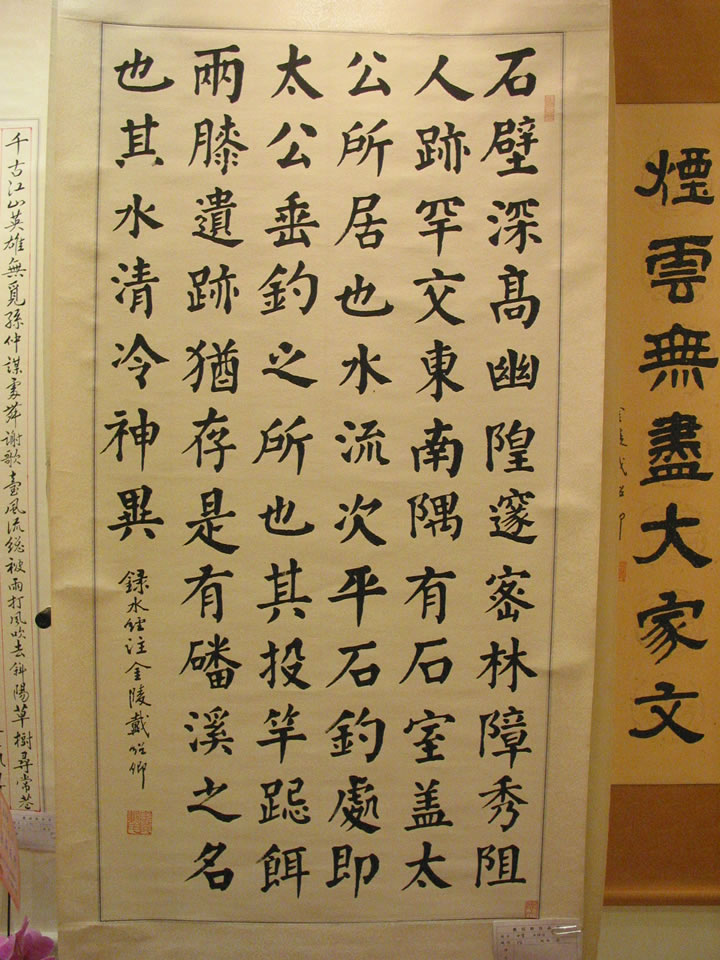 煙雲無盡大家文
石壁深髙幽隍邃密林障秀阻
人跡罕交東南隅有石室盖太
公所居也水流次平石釣處即
太公垂釣之所也其投竿跽餌
兩膝遺跡猶存是有磻溪之名
也其水清冷神異
録水经注金陵戴紹卿
千古江山英雄無覓孫仲謀處舞謝歌臺風流總被雨打風吹去斜陽草樹尋常巷